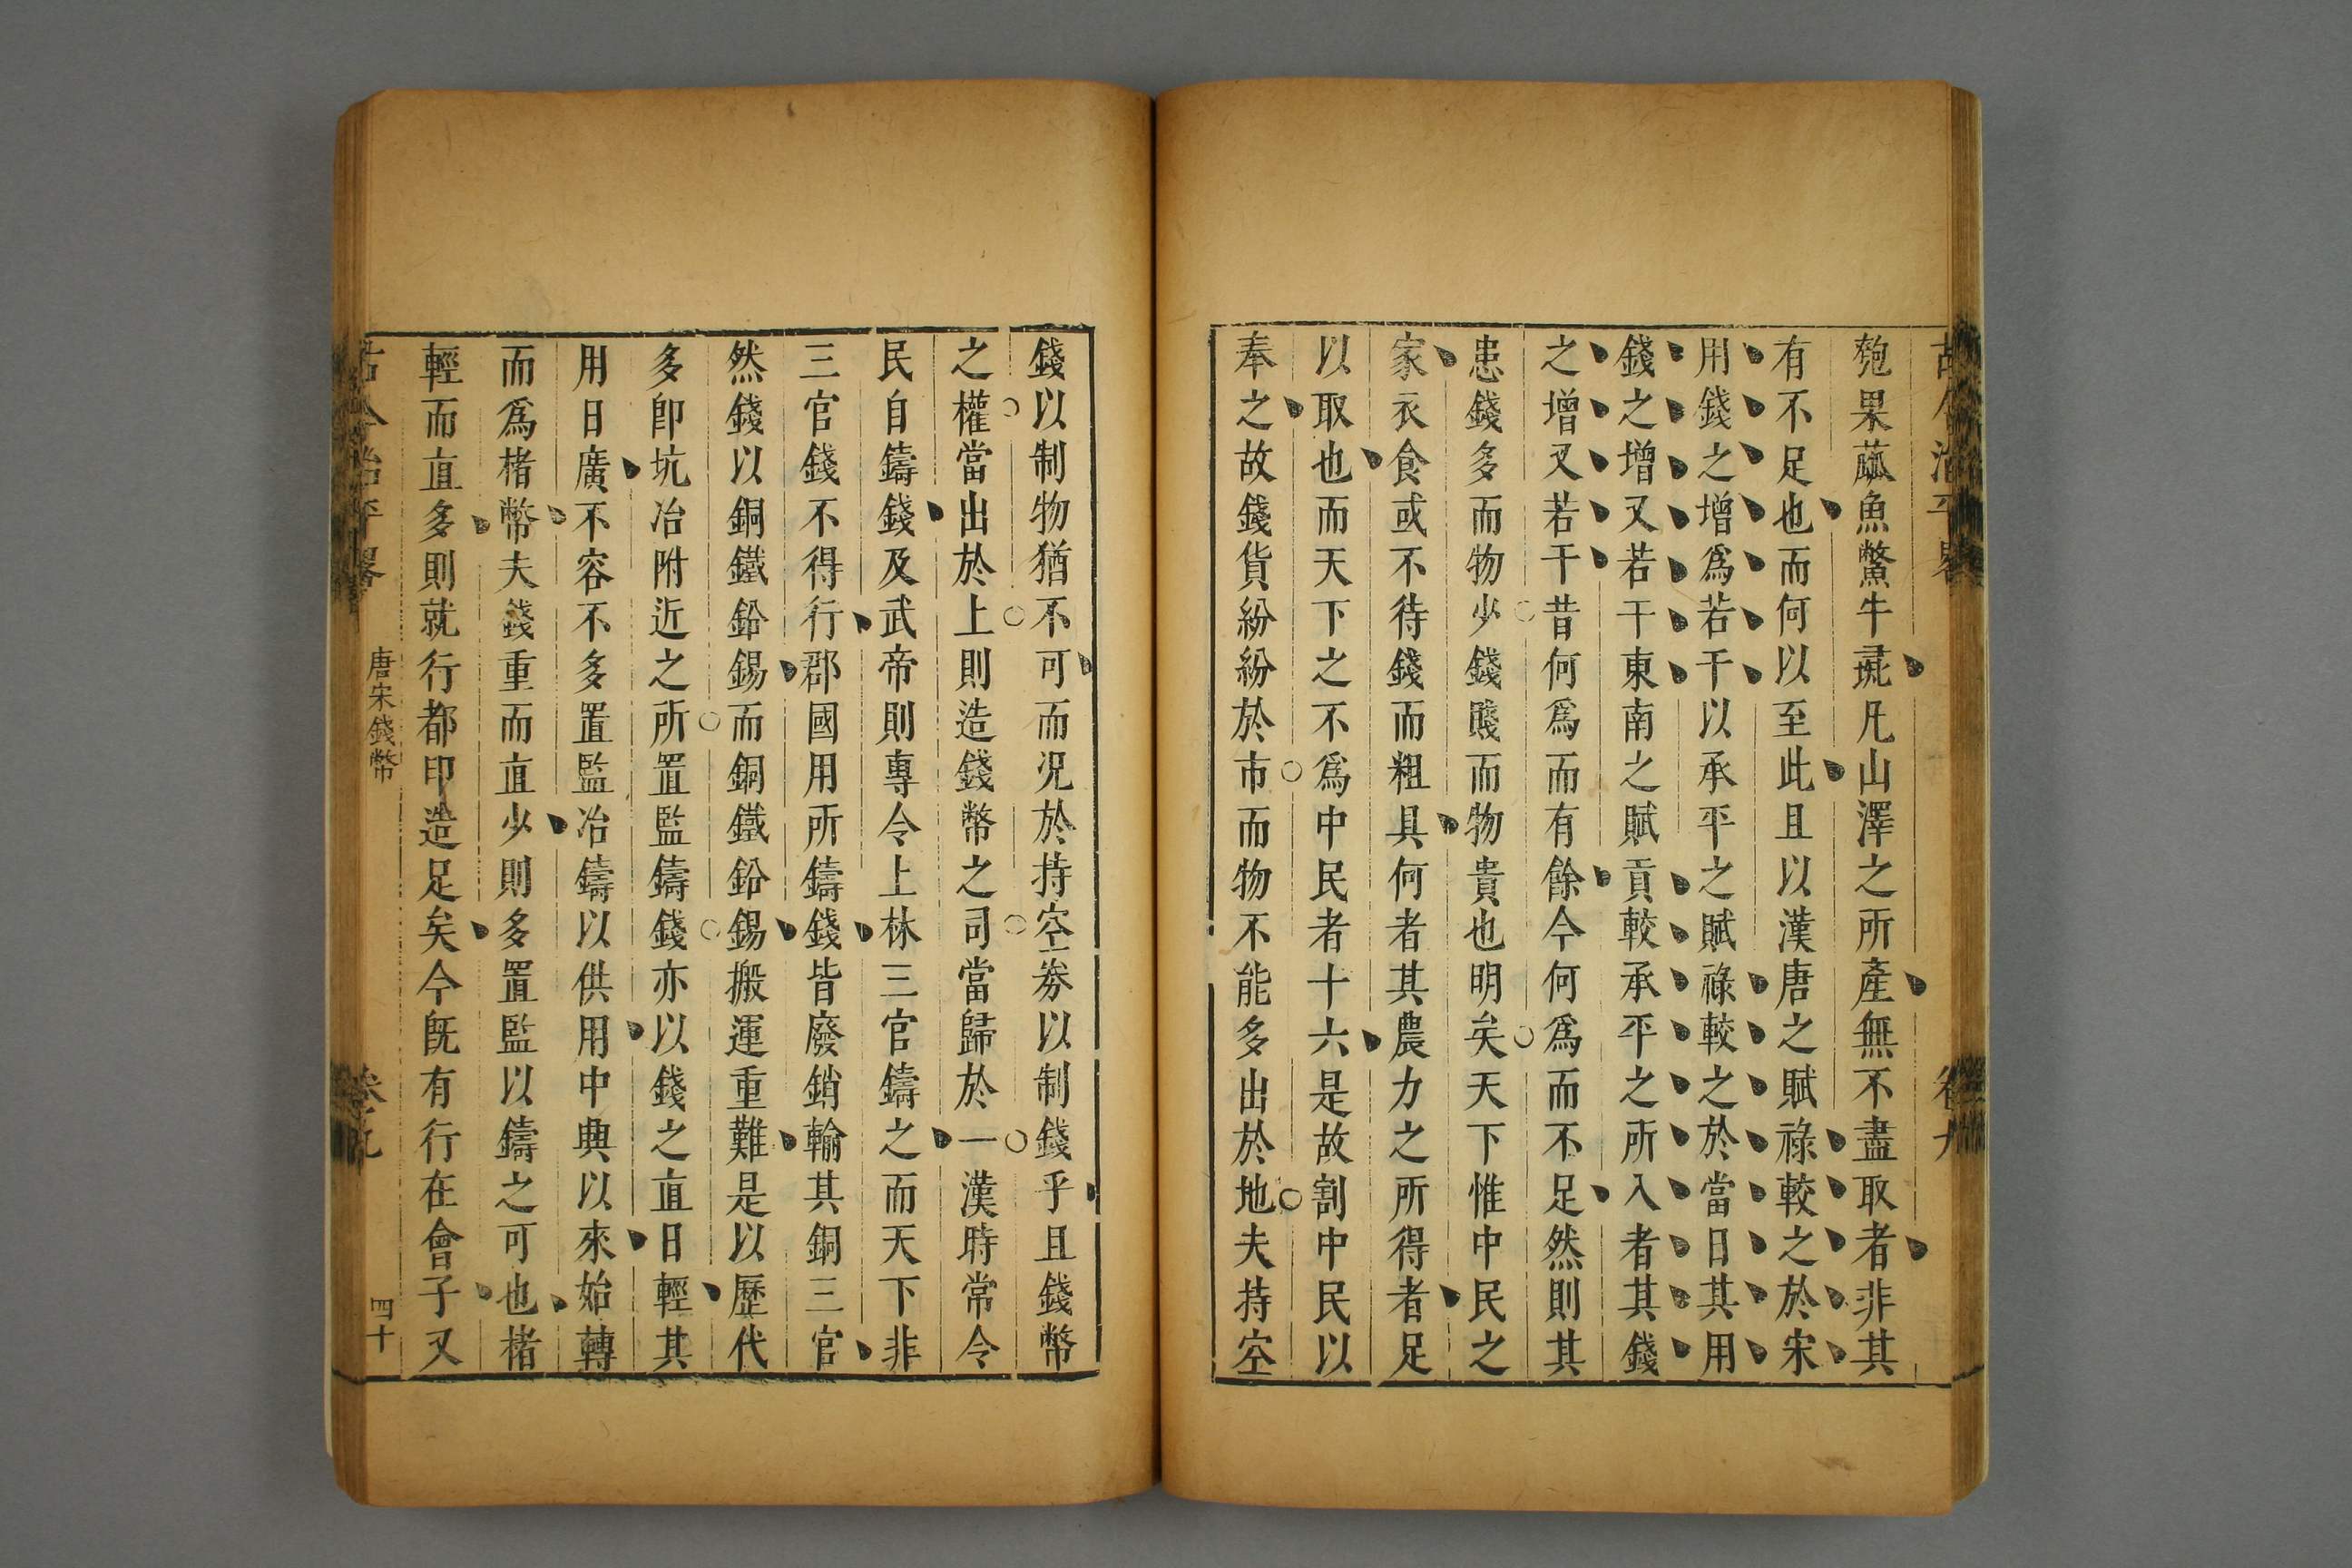 古今治平畧 卷九
匏果蓏魚鱉牛彘凡山澤之所產無不盡取者非其
有不足也而何以至此且以漢唐之賦祿較之於宋
用錢之增爲若干以承平之賦祿較之於當日其用
錢之增又若干東南之賦貢較承平之所入者其錢
之增又若干昔何爲而有餘今何爲而不足然則其
患錢多而物少錢賤而物貴也明矣天下惟中民之
家衣食或不待錢而粗具何者其農力之所得者足
以取也而天下之不爲中民者十六是故割中民以
奉之故錢貨紛紛於市而物不能多出於地夫持空
錢以制物猶不可而况於持空劵以制錢乎且錢幣
之權當出於上則造錢幣之司當歸於一漢時常令
民自鑄錢及武帝則專令上林三官鑄之而天下非
三官錢不得行郡國用所鑄錢皆廢銷輸其銅三官
然錢以銅鐵鉛錫而銅鐵鉛錫搬運重難是以歷代
多卽坑冶附近之所置監鑄錢亦以錢之直日輕其
用日廣不容不多置監冶鑄以供用中興以來始轉
而爲楮幣夫錢重而直少則多置監以鑄之可也楮
輕而直多則就行都印造足矣今旣有行在會子又
古今治平畧 唐宋錢幣 卷之九 四十